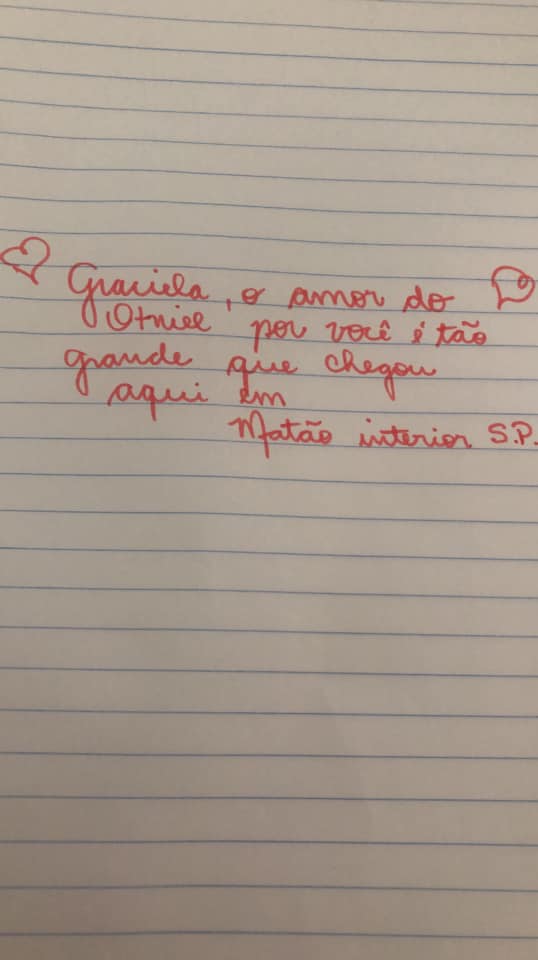 Graciela, o amor do
Otniel por você é tão
grande que chegou
aqui em
Matão interior S.P.